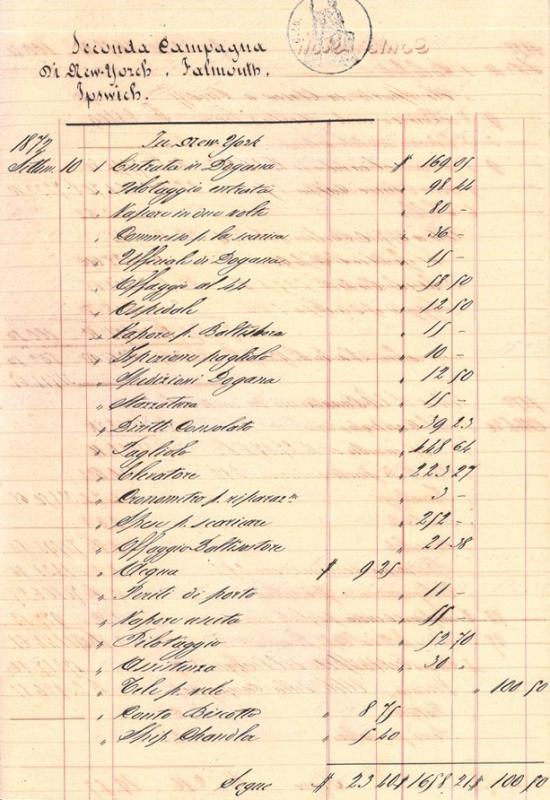 Seconda Campagna
Di New-Yorch, Falmouth,
Ipswich.
1872 In New-York
Settem. 10 1 Entrata in Dogana $ 169 05
" Pilotaggio entrata " 98 44
" Vapore in due volte " 80 -
" Commesso p. la scarica " 36 -
" Ufficiale di Dogana " 15 -
" Offaggio al 44 " 58 50
" Ospedale " 12 50
" Vapore p. " 15 -
" Ispezione pagliolo " 10 -
" Spedizioni Dogana " 12 50
" Stazzatura " 15 -
" Diritti Consolato " 39 23
" Pagliolo " 448 64
" Elevatore " 223 27
" Cronometro p. riparaz.ne " 3 -
" Spese p. scaricare " 252 -
" Offaggio " 21 38
" Acqua $ 9 25
" Periti di porto " 11 -
" Vapore uscita " 55 -
" Pilotaggio " 52 70
" Assistenza " 30 "
" Tele p. vele " 100 50
" Conto Biscotto " 8 75
" Ship Chandla " 5 40
Segue $ 23 40 $ 1658 21 $ 100 50